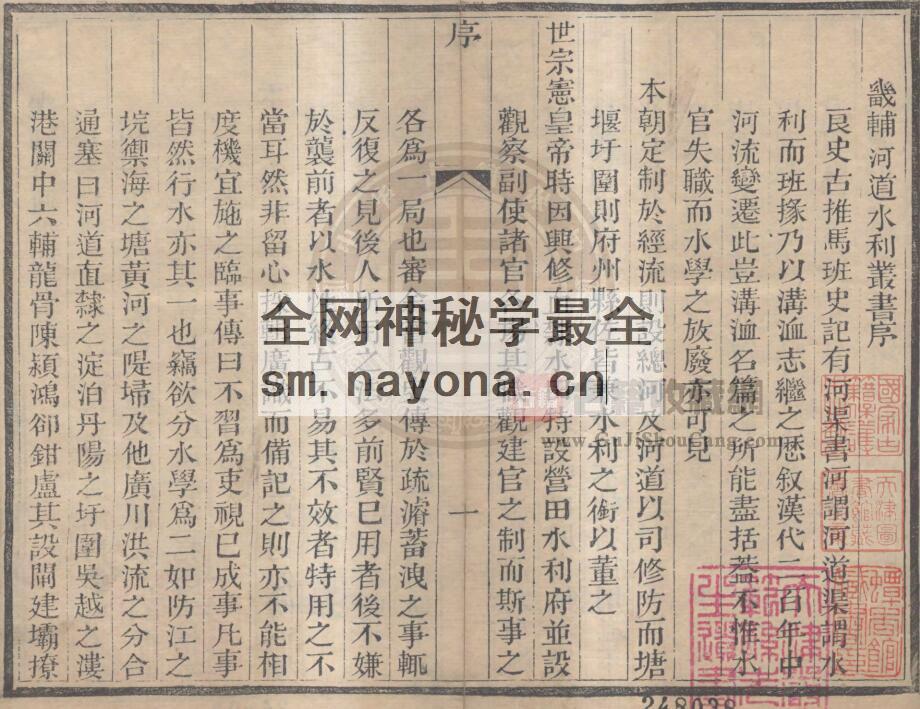 畿輔河道水利叢書序
良史古推馬班史記有河渠書河謂河道渠謂水
利而班掾乃以溝洫志繼之歷叙漢代二百年中
河流變遷此豈溝洫名篇之所能盡括葢不惟水
官失職而水學之放廢亦可見
本朝定制於經流則設總河及河道以司修防而塘
堰圩圍則府州縣佐皆兼水利之銜以董之
世宗憲皇帝時因興修水特設營田水利府並設
觀察副使諸官其觀建官之制而斯事之
序
一
各爲一局也審觀傳於疏濬蓄洩之事輒
反復之見後人之多前賢已用者後不嫌
於襲前者以水古不易其不效者特用之不
當耳然非留心廣識而備記之則亦不能相
度機宜施之臨事傳曰不習爲吏視已成事凡事
皆然行水亦其一也竊欲分水學爲二如防江之
垸禦海之塘黃河之隄埽及他廣川洪流之分合
通塞曰河道直隸之淀泊丹陽之圩圍吳越之漊
港關中六輔龍骨陳潁鴻郤鉗盧其設閘建壩撩
全网神秘学最全
sm.nayona.cn
248038